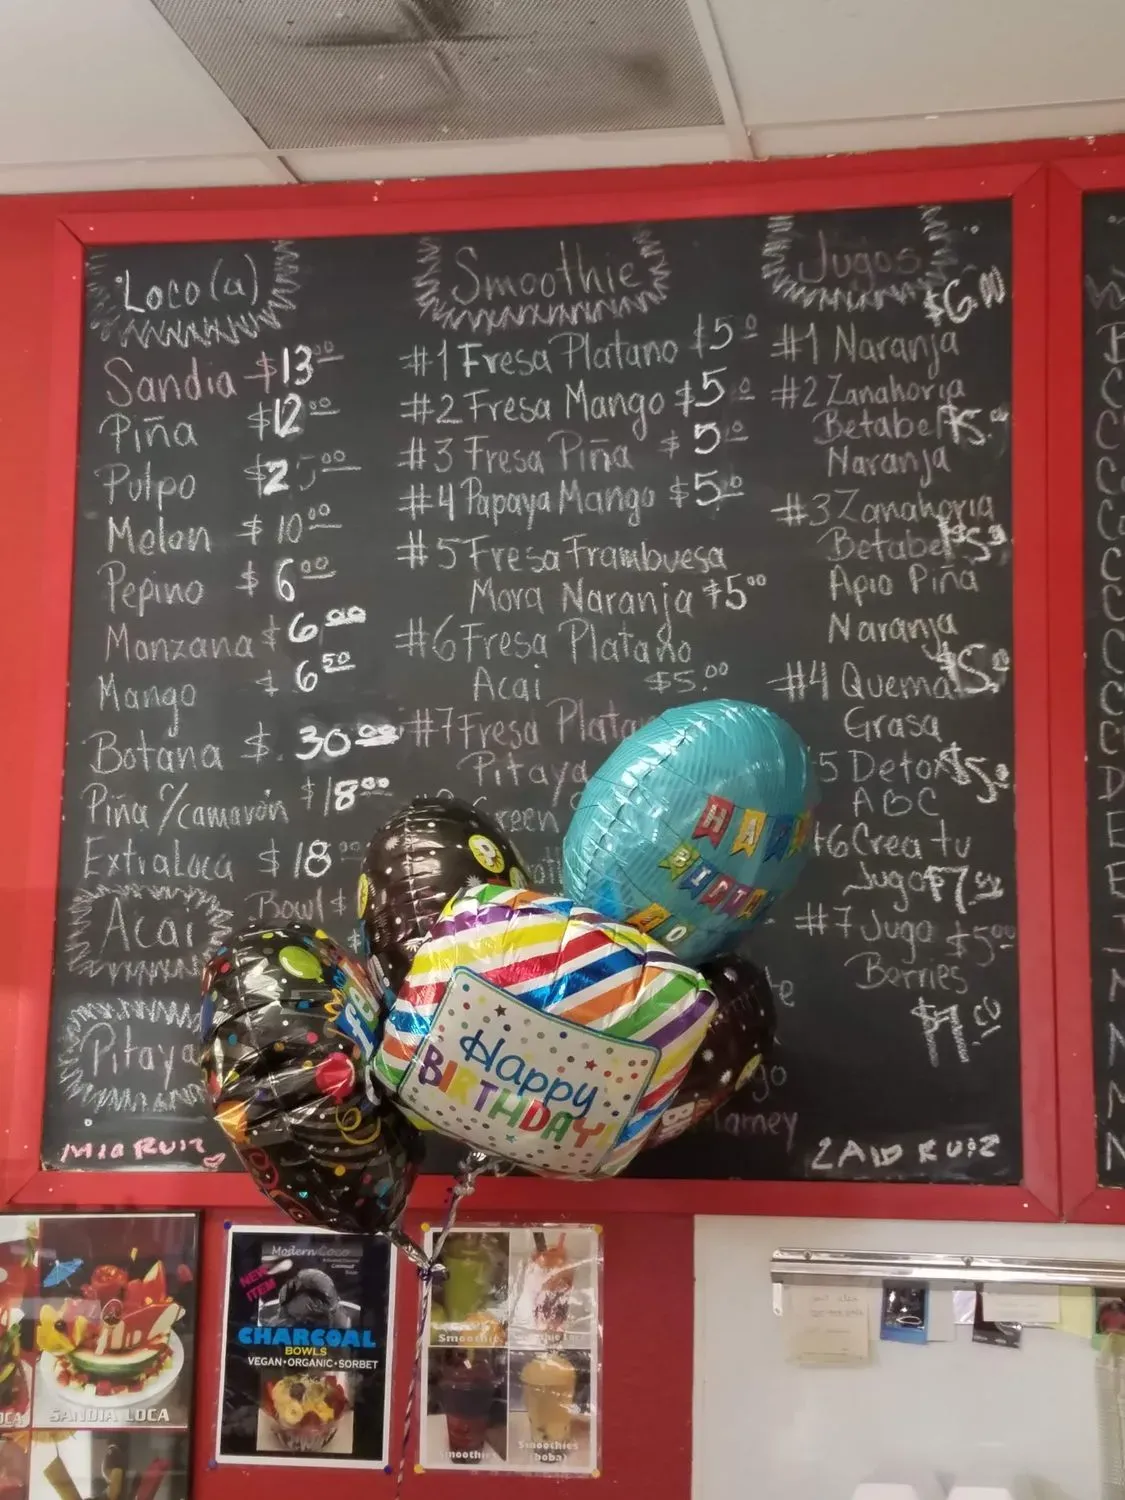 Loco(a)
Sandia $13.00
Piña $12.00
Pulpo $25.00
Melon $10.00
Pepino $6.00
Manzana $6.00
Mango $6.50
Botana $30.00
Piña c/camarón $18.00
Extra Loca $18.00
Acai Bowl $
Pitaya
MIA RUIZ
Smoothie
#1 Fresa Platano $5.0
#2 Fresa Mango $5.0
#3 Fresa Piña $5.0
#4 Papaya Mango $5.0
#5 Fresa Frambuesa
Mora Naranja $5.00
#6 Fresa Platano
Acai $5.00
#7 Fresa Plata
Pitaya
reen
Jugos
$6.00
#1 Naranja
#2 Zanahoria
Betabel $5.
Naranja
#3 Zanahoria
Betabel $5.
Apio Piña
Naranja
$5.0
#4 Quema
Grasa
5 Detox $5.0
ABC
#6 Crea tu
Jugo $7.00
#7 Jugo $5.00
Berries
$7.00
amey
ZAID RUIZ
HAPPY
BIRTHDAY
Happy
BIRTHDAY
SANDIA LOCA
Modern Coco
NEW
ITEM
CHARCOAL
BOWLS
VEGAN•ORGANIC•SORBET
Smoothie
Smoothies
Smoothies
(boba)